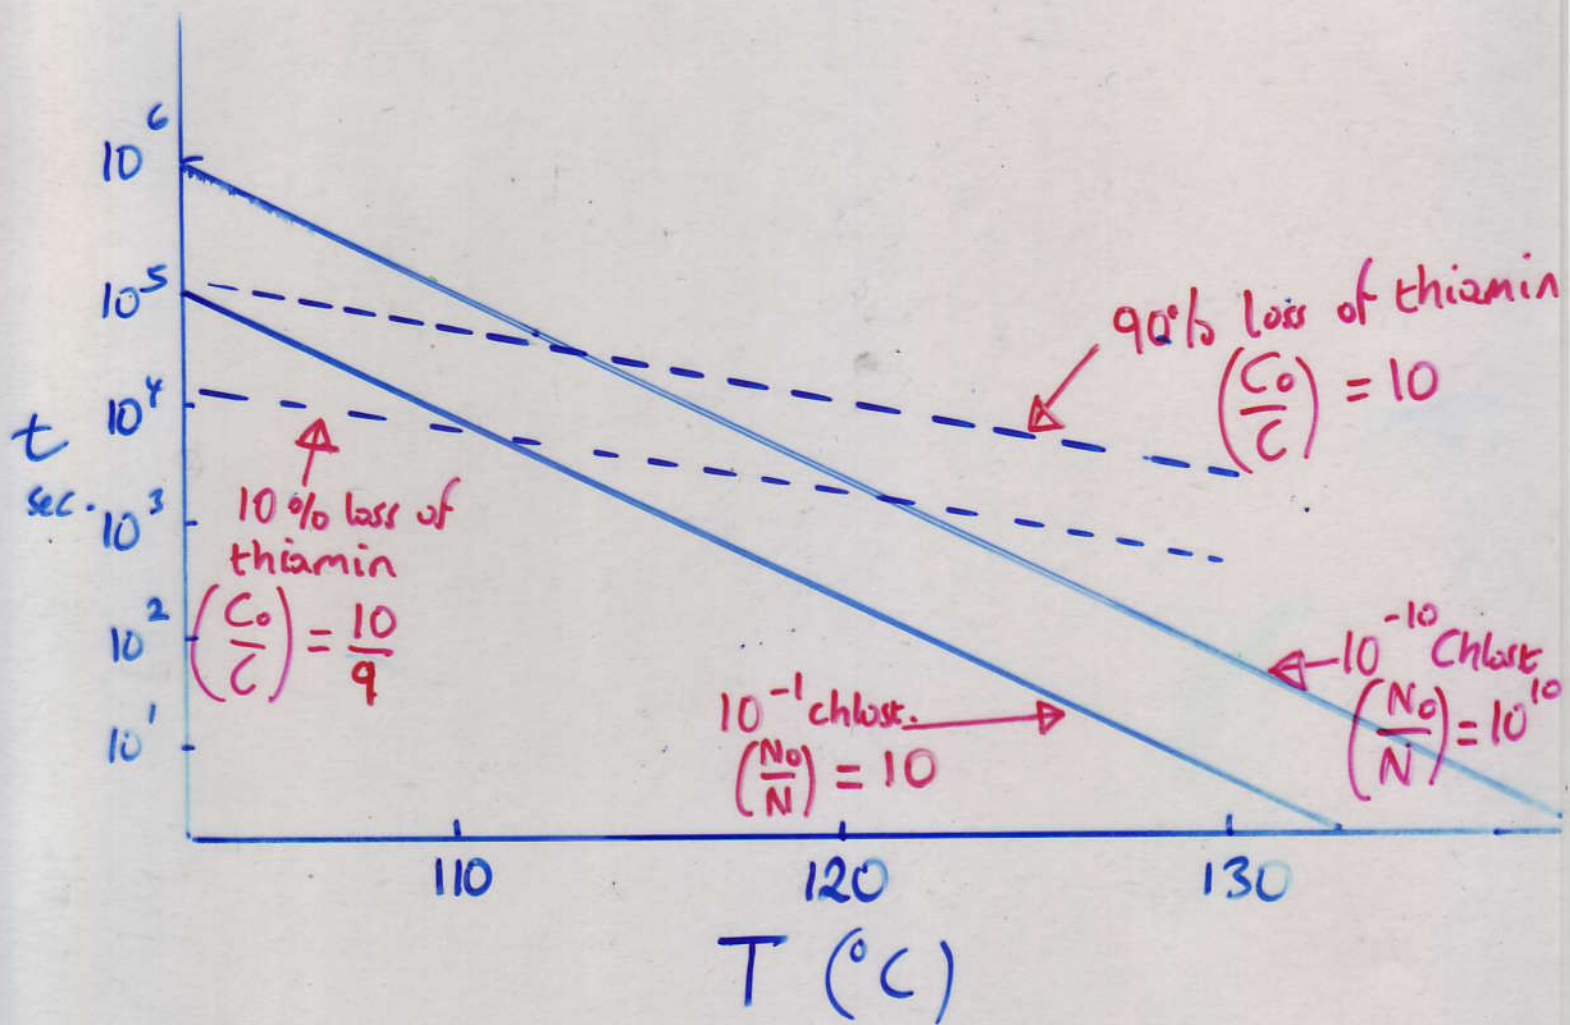 10⁶
10⁵
10⁴
t
sec.
10³
10²
10¹
90% loss of thiamin
(C₀/C) = 10
10% loss of
thiamin
(C₀/C) = 10/9
10⁻¹ chlost.
(N₀/N) = 10
10⁻¹⁰ Chlost
(N₀/N) = 10¹⁰
110
120
130
T (°C)